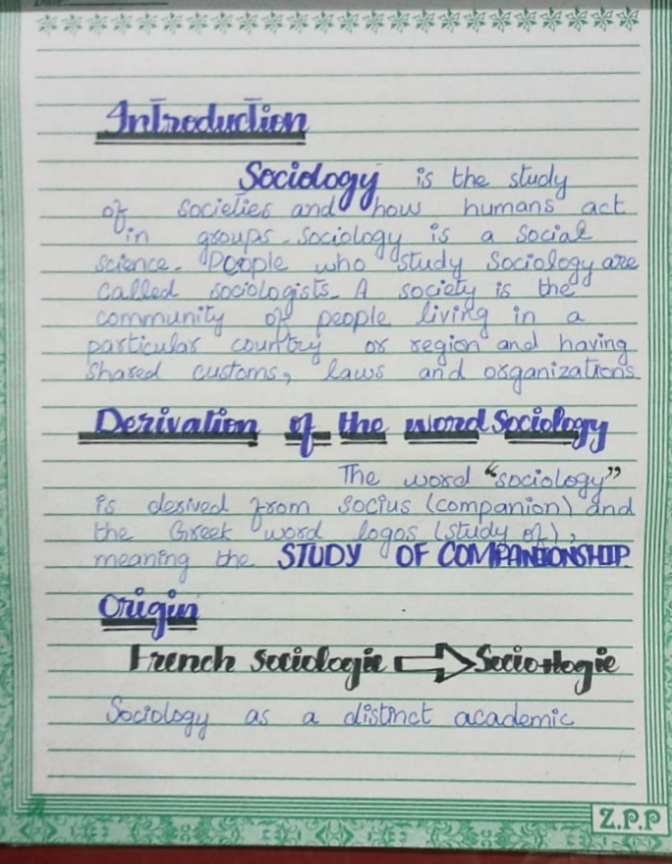 Date:
Introduction
Sociology is the study
of societies and how humans act
in groups. Sociology is a social
science. People who study Sociology are
called sociologists. A society is the
community of people living in a
particular country or region and having
shared customs, laws and organizations
Derivation of the word Sociology
The word "sociology"
is derived from socius (companion) and
the Greek word logos (study of),
meaning the STUDY OF COMPANIONSHIP.
Origin
French sociologie ⇒ Socio+logie
Sociology as a distinct academic
Z.P.P